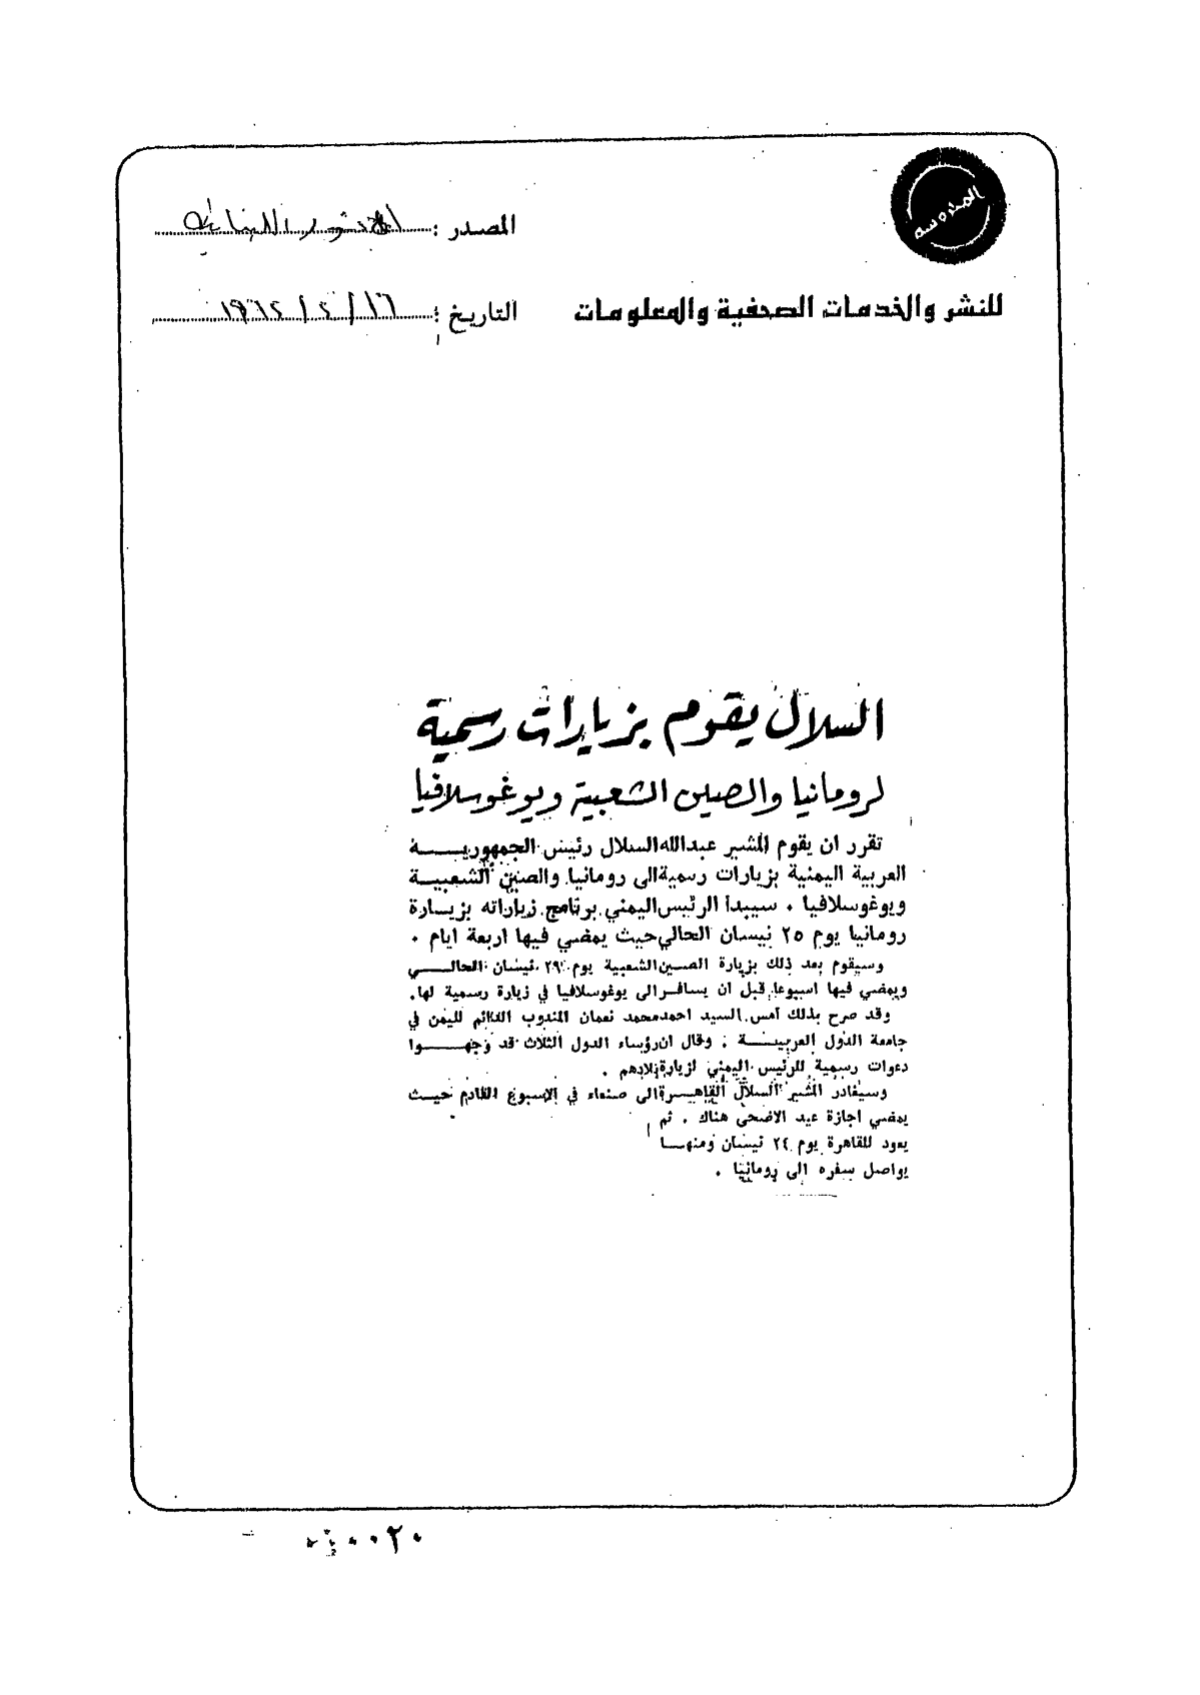 المحروسة
المصدر :
للنشر والخدمات الصحفية والمعلومات
التاريخ : ١٦/
السلال يقوم بزيارات رسمية
لرومانيا والصين الشعبية ويوغوسلافيا
تقرر ان يقوم المشير عبدالله السلال رئيس الجمهوريـــة
العربية اليمنية بزيارات رسمية الى رومانيا والصين الشعبيـة
ويوغوسلافيا . سيبدأ الرئيس اليمني برنامج زياراته بزيـارة
رومانيا يوم ٢٥ نيسان الحالي حيث يمضي فيها اربعة ايام .
وسيقوم بعد ذلك بزيارة الصين الشعبية يوم ٢٩ نيسان الحالـــي
ويمضي فيها اسبوعا قبل ان يسافر الى يوغوسلافيا في زيارة رسمية لها.
وقد صرح بذلك أمس السيد احمد محمد نعمان المندوب الدائم لليمن في
جامعة الدول العربيــة . وقال ان رؤساء الدول الثلاث قد وجهــوا
دعوات رسمية للرئيس اليمني لزيارة بلادهم .
وسيغادر المشير السلال القاهرة الى صنعاء في الاسبوع القادم حيث
يمضي اجازة عيد الاضحى هناك . ثم
يعود للقاهرة يوم ٢٤ نيسان ومنهـا
يواصل سفره الى رومانيا .